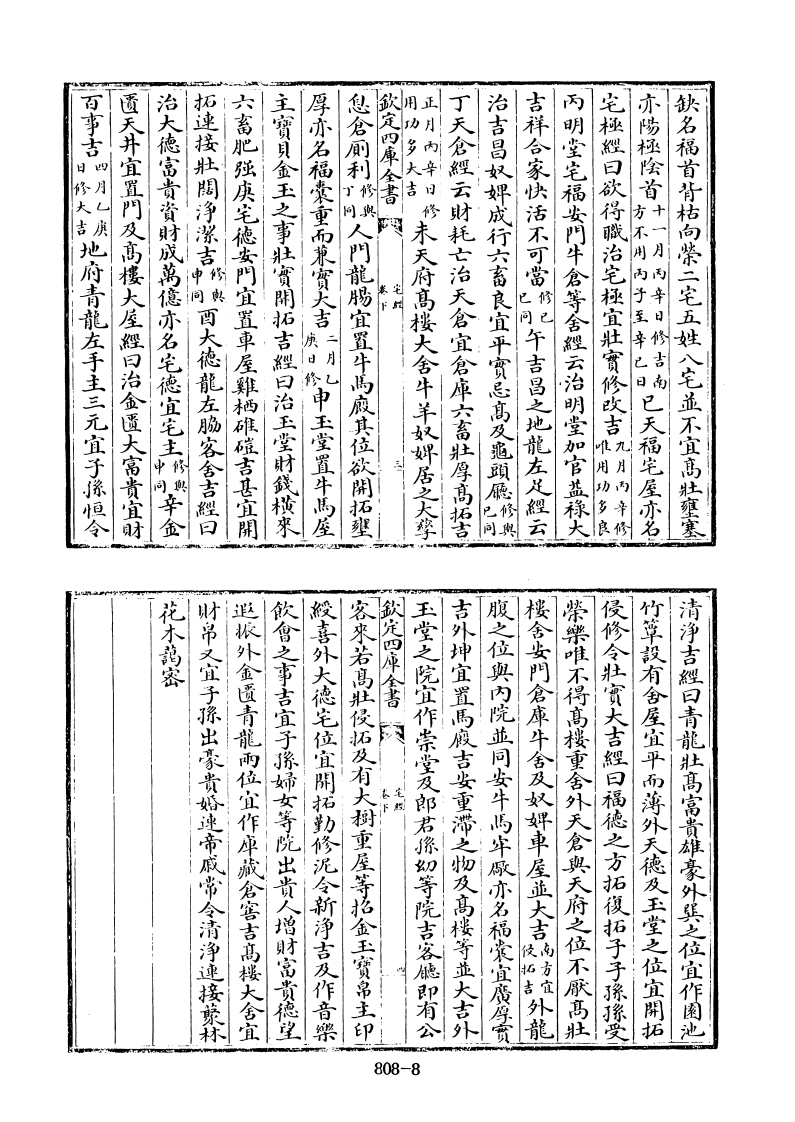 缺名福首背枯向榮二宅五姓八宅並不宜髙壯壅塞
亦陽極隂首十一月丙辛日修吉南方不用丙子至辛巳日巳天福宅屋亦名
宅極經曰欲得職治宅極宜壯實修改吉九月丙辛修唯用功多良
丙明堂宅福安門牛倉等舍經云治明堂加官益祿大
吉祥合家快活不可當修巳巳同午吉昌之地龍左足經云
治吉昌奴婢成行六畜良宜平實忌髙及龜頭廳修與巳同
丁天倉經云財耗亡治天倉宜倉庫六畜壯厚髙拓吉
正月丙辛日修用功多大吉未天府髙樓大舍牛羊奴婢居之大孳
欽定四庫全書
宅經
卷下
三
息倉厠利修與丁同人門龍腸宜置牛馬廄其位欲開拓壅
厚亦名福囊重而兼實大吉二月乙庚日修申玉堂置牛馬屋
主寶貝金玉之事壯實開拓吉經曰治玉堂財錢横來
六畜肥强庚宅德安門宜置車屋雞栖碓磑吉甚宜開
拓連接壯闊淨潔吉修與申同酉大德龍左脇客舍吉經曰
治大德富貴資財成萬億亦名宅德宜宅主修與申同辛金
匱天井宜置門及髙樓大屋經曰治金匱大富貴宜財
百事吉四月乙庚日修大吉地府青龍左手主三元宜子孫恒令
清浄吉經曰青龍壯髙富貴雄豪外巽之位宜作園池
竹簟設有舍屋宜平而薄外天德及玉堂之位宜開拓
侵修令壯實大吉經曰福德之方拓復拓子子孫孫受
榮樂唯不得髙樓重舍外天倉與天府之位不厭髙壯
樓舍安門倉庫牛舍及奴婢車屋並大吉南方宜侵拓吉外龍
腹之位與内院並同安牛馬牢厰亦名福裳宜廣厚實
吉外坤宜置馬廄吉安重滯之物及髙樓等並大吉外
玉堂之院宜作崇堂及郎君孫幼等院吉客廳即有公
欽定四庫全書
宅經
卷下
四
客來若髙壯侵拓及有大樹重屋等招金玉寶帛主印
綬喜外大德宅位宜開拓勤修泥令新浄吉及作音樂
飲會之事吉宜子孫婦女等院出貴人增財富貴德望
遐振外金匱青龍兩位宜作庫藏倉窖吉髙樓大舍宜
財帛又宜子孫出豪貴婚連帝戚常令清浄連接藂林
花木藹密
808-8